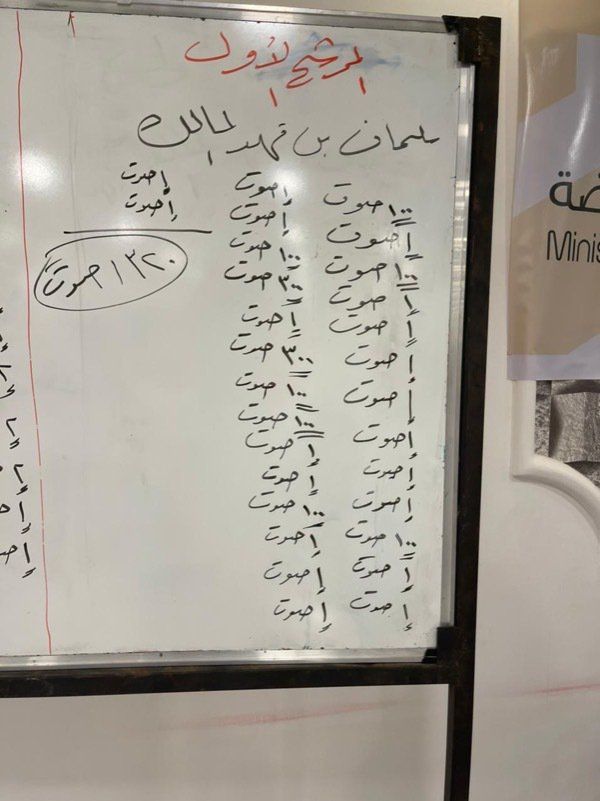 المرشح الأول
سليمان بن فهد المالك
١٠٠ صوت
١ صوت
١٠٠ صوت
١ صوت
١ صوت
١ صوت
١ صوت
١ صوت
١ صوت
١ صوت
١٠٠ صوت
١ صوت
١ صوت
١ صوت
١ صوت
١٠٠ صوت
٣٠٠ صوت
١ صوت
٣٠٠ صوت
١٠٠ صوت
١٠٠ صوت
١ صوت
١ صوت
١٠٠ صوت
١ صوت
١ صوت
١ صوت
١ صوت
١ صوت
١٣٢٠ صوت